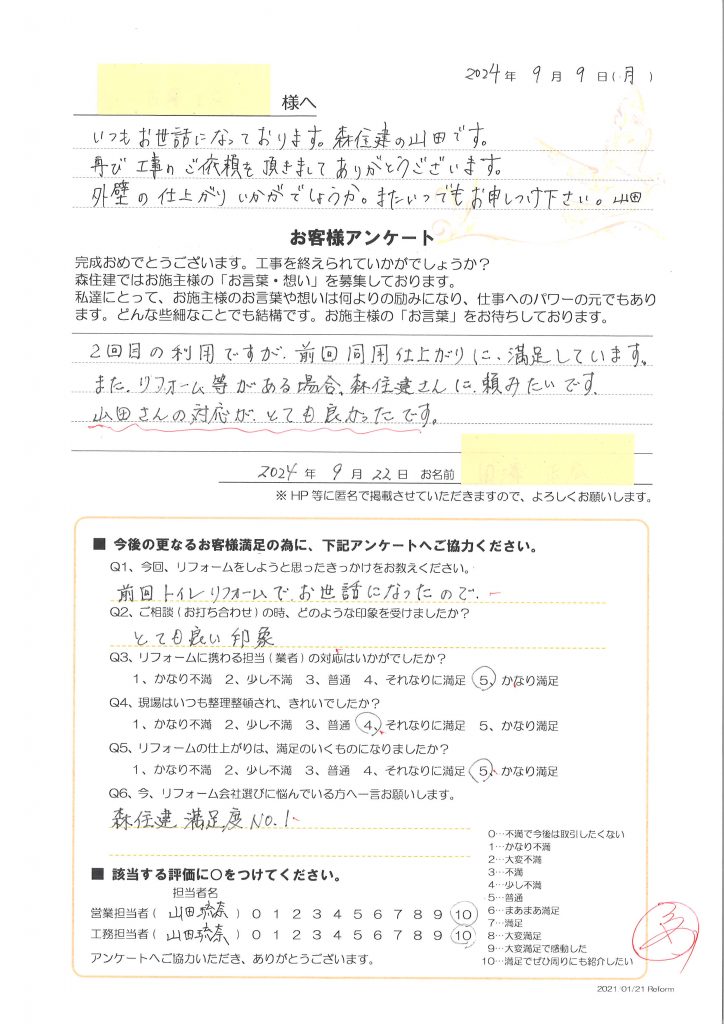 2024年 9月 9日(月)
様へ
いつもお世話になっております。森住建の山田です。
再び工事のご依頼を頂きましてありがとうございます。
外壁の仕上がりいかがでしょうか。またいつでもお申しつけ下さい。山田
お客様アンケート
完成おめでとうございます。工事を終えられていかがでしょうか?
森住建ではお施主様の「お言葉・想い」を募集しております。
私達にとって、お施主様のお言葉や想いは何よりの励みになり、仕事へのパワーの元でもあり
ます。どんな些細なことでも結構です。お施主様の「お言葉」をお待ちしております。
2回目の利用ですが、前回同用仕上がりに、満足しています。
また、リフォーム等がある場合、森住建さんに、頼みたいです、
山田さんの対応が、とても良かったです。
2024年 9月 22日 お名前
※HP等に匿名で掲載させていただきますので、よろしくお願いします。
■ 今後の更なるお客様満足の為に、下記アンケートへご協力ください。
Q1、今回、リフォームをしようと思ったきっかけをお教えください。
前回トイレリフォームで、お世話になったので、
Q2、ご相談(お打ち合わせ)の時、どのような印象を受けましたか?
とても良い印象
Q3、リフォームに携わる担当(業者)の対応はいかがでしたか?
1、かなり不満 2、少し不満 3、普通 4、それなりに満足 5、かなり満足
Q4、現場はいつも整理整頓され、きれいでしたか?
1、かなり不満 2、少し不満 3、普通 4、それなりに満足 5、かなり満足
Q5、リフォームの仕上がりは、満足のいくものになりましたか?
1、かなり不満 2、少し不満 3、普通 4、それなりに満足 5、かなり満足
Q6、今、リフォーム会社選びに悩んでいる方へ一言お願いします。
森住建 満足度 No.1
■ 該当する評価に○をつけてください。
担当者名
営業担当者(山田琉奈) 0 1 2 3 4 5 6 7 8 9 10
工務担当者(山田琉奈) 0 1 2 3 4 5 6 7 8 9 10
アンケートへご協力いただき、ありがとうございます。
0…不満で今後は取引したくない
1…かなり不満
2…大変不満
3…不満
4…少し不満
5…普通
6…まあまあ満足
7…満足
8…大変満足
9…大変満足で感動した
10…満足でぜひ周りにも紹介したい
2021/01/21 Reform